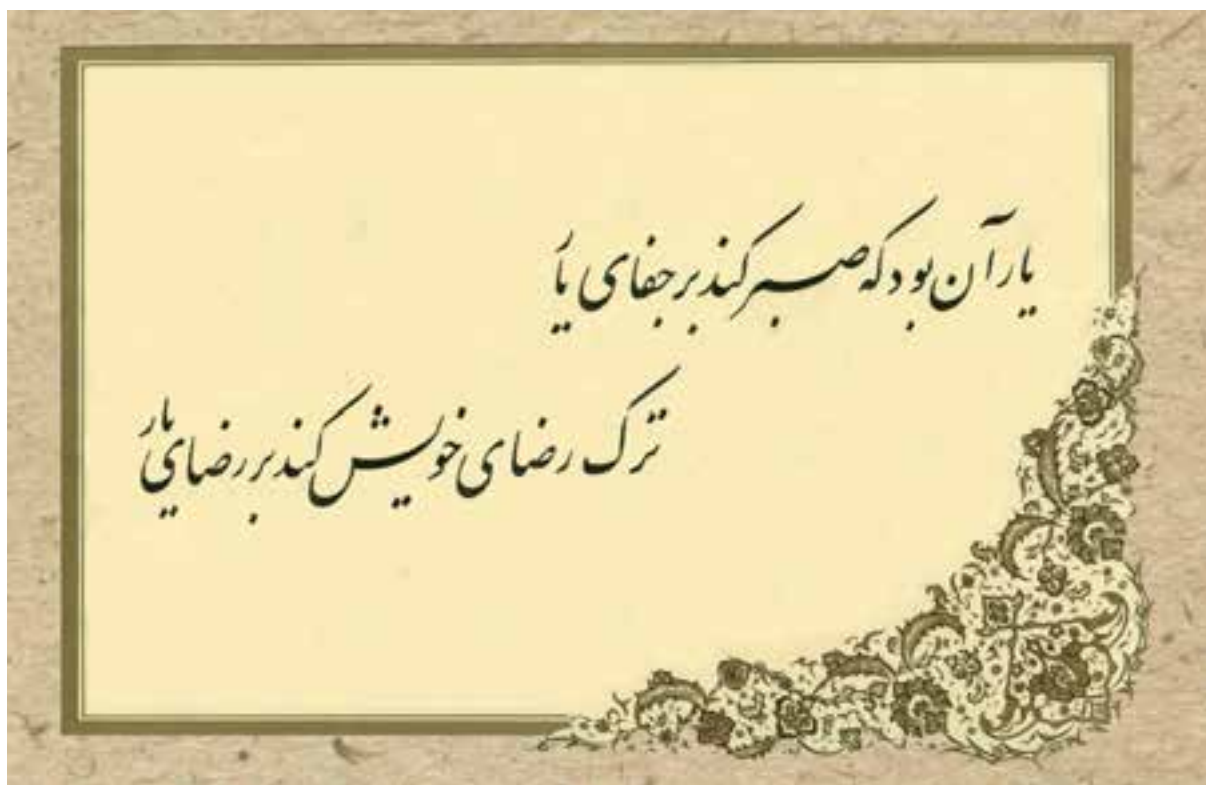 یار آن بود که صبر کند بر جفای یار
ترک رضای خویش کند بر رضای یار